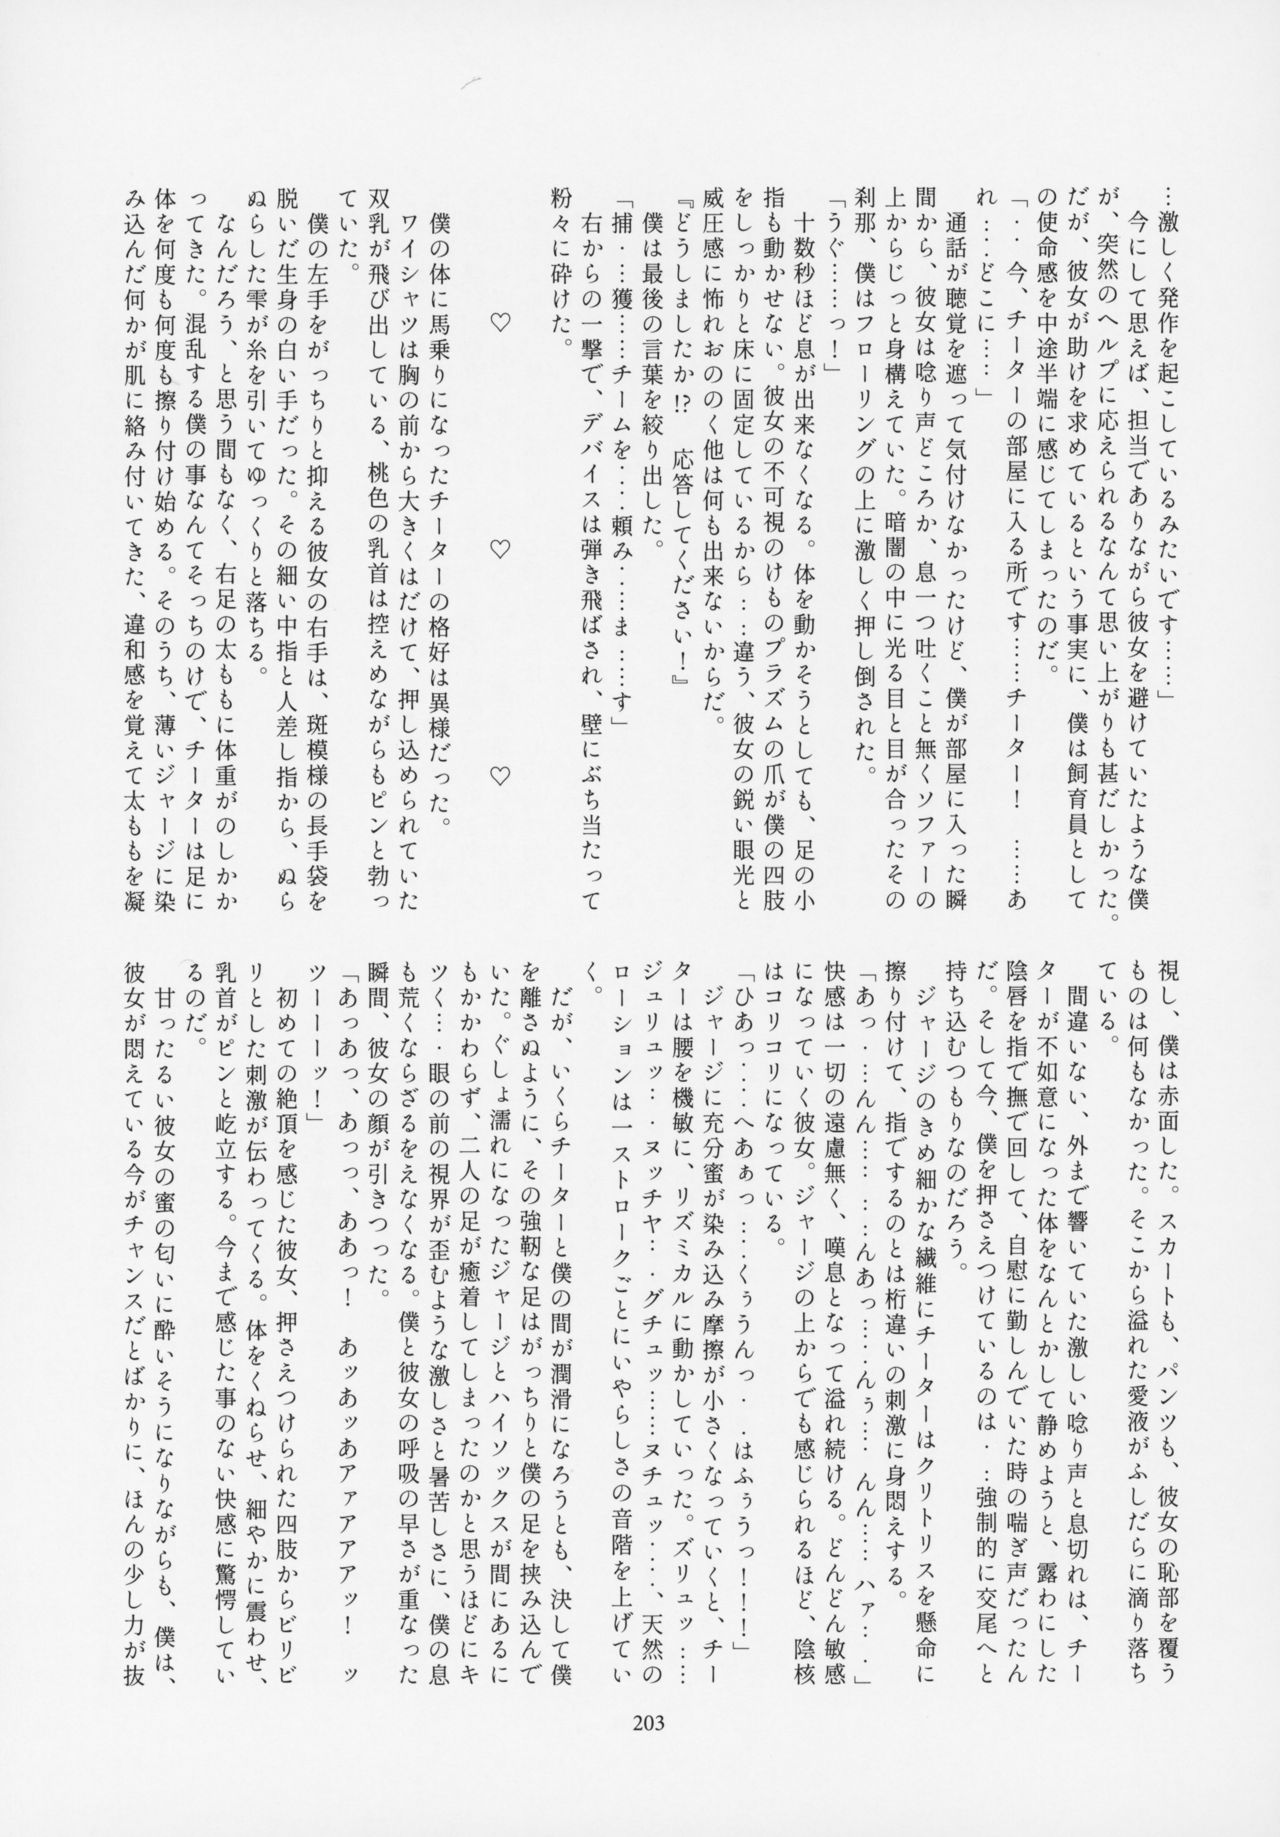 …激しく発作を起こしているみたいです……」
　今にして思えば、担当でありながら彼女を避けていたような僕
が、突然のヘルプに応えられるなんて思い上がりも甚だしかった。
だが、彼女が助けを求めているという事実に、僕は飼育員として
の使命感を中途半端に感じてしまったのだ。
「‥今、チーターの部屋に入る所です……チーター！　……あ
れ…‥どこに……」
　通話が聴覚を遮って気付けなかったけど、僕が部屋に入った瞬
間から、彼女は唸り声どころか、息一つ吐くこと無くソファーの
上からじっと身構えていた。暗闇の中に光る目と目が合ったその
刹那、僕はフローリングの上に激しく押し倒された。
「うぐ……っ！」
　十数秒ほど息が出来なくなる。体を動かそうとしても、足の小
指も動かせない。彼女の不可視のけものプラズムの爪が僕の四肢
をしっかりと床に固定しているから‥‥違う、彼女の鋭い眼光と
威圧感に怖れおののく他は何も出来ないからだ。
『どうしましたか!?　応答してください！』
　僕は最後の言葉を絞り出した。
「捕‥…獲……チームを‥‥頼み……ま……す」
　右からの一撃で、デバイスは弾き飛ばされ、壁にぶち当たって
粉々に砕けた。
♡　♡　♡
　僕の体に馬乗りになったチーターの格好は異様だった。
　ワイシャツは胸の前から大きくはだけて、押し込められていた
双乳が飛び出している、桃色の乳首は控えめながらもピンと勃っ
ていた。
　僕の左手をがっちりと抑える彼女の右手は、斑模様の長手袋を
脱いだ生身の白い手だった。その細い中指と人差し指から、ぬら
ぬらした雫が糸を引いてゆっくりと落ちる。
　なんだろう、と思う間もなく、右足の太ももに体重がのしかか
ってきた。混乱する僕の事なんてそっちのけで、チーターは足に
体を何度も何度も擦り付け始める。そのうち、薄いジャージに染
み込んだ何かが肌に絡み付いてきた、違和感を覚えて太ももを凝
視し、僕は赤面した。スカートも、パンツも、彼女の恥部を覆う
ものは何もなかった。そこから溢れた愛液がふしだらに滴り落ち
ている。
　間違いない、外まで響いていた激しい唸り声と息切れは、チー
ターが不如意になった体をなんとかして静めようと、露わにした
陰唇を指で撫で回して、自慰に勤しんでいた時の喘ぎ声だったん
だ。そして今、僕を押さえつけているのは‥‥強制的に交尾へと
持ち込むつもりなのだろう。
　ジャージのきめ細かな繊維にチーターはクリトリスを懸命に
擦り付けて、指でするのとは桁違いの刺激に身悶えする。
「あっ‥‥んん……‥‥んあっ……‥んぅ…‥んん……ハァ‥‥」
快感は一切の遠慮無く、嘆息となって溢れ続ける。どんどん敏感
になっていく彼女。ジャージの上からでも感じられるほど、陰核
はコリコリになっている。
「ひあっ‥‥へあぁっ…‥くぅうんっ‥‥はふぅうっ！！！」
　ジャージに充分蜜が染み込み摩擦が小さくなっていくと、チー
ターは腰を機敏に、リズミカルに動かしていった。ズリュッ……
ジュリュッ‥‥ヌッチヤ‥‥グチュッ……ヌチュッ‥‥、天然の
ローションは一ストロークごとにいやらしさの音階を上げてい
く。
　だが、いくらチーターと僕の間が潤滑になろうとも、決して僕
を離さぬように、その強靭な足はがっちりと僕の足を挟み込んで
いた。ぐしょ濡れになったジャージとハイソックスが間にあるに
もかかわらず、二人の足が癒着してしまったのかと思うほどにキ
ツく…‥眼の前の視界が歪むような激しさと暑苦しさに、僕の息
も荒くならざるをえなくなる。僕と彼女の呼吸の早さが重なった
瞬間、彼女の顔が引きつった。
「あっあっ、あっっ、ああっ！　あッあッあアァアアアッ！　ッ
ツーーーッ！」
　初めての絶頂を感じた彼女、押さえつけられた四肢からビリビ
リとした刺激が伝わってくる。体をくねらせ、細やかに震わせ、
乳首がピンと屹立する。今まで感じた事のない快感に驚愕してい
るのだ。
　甘ったるい彼女の蜜の匂いに酔いそうになりながらも、僕は、
彼女が悶えている今がチャンスだとばかりに、ほんの少し力が抜
203